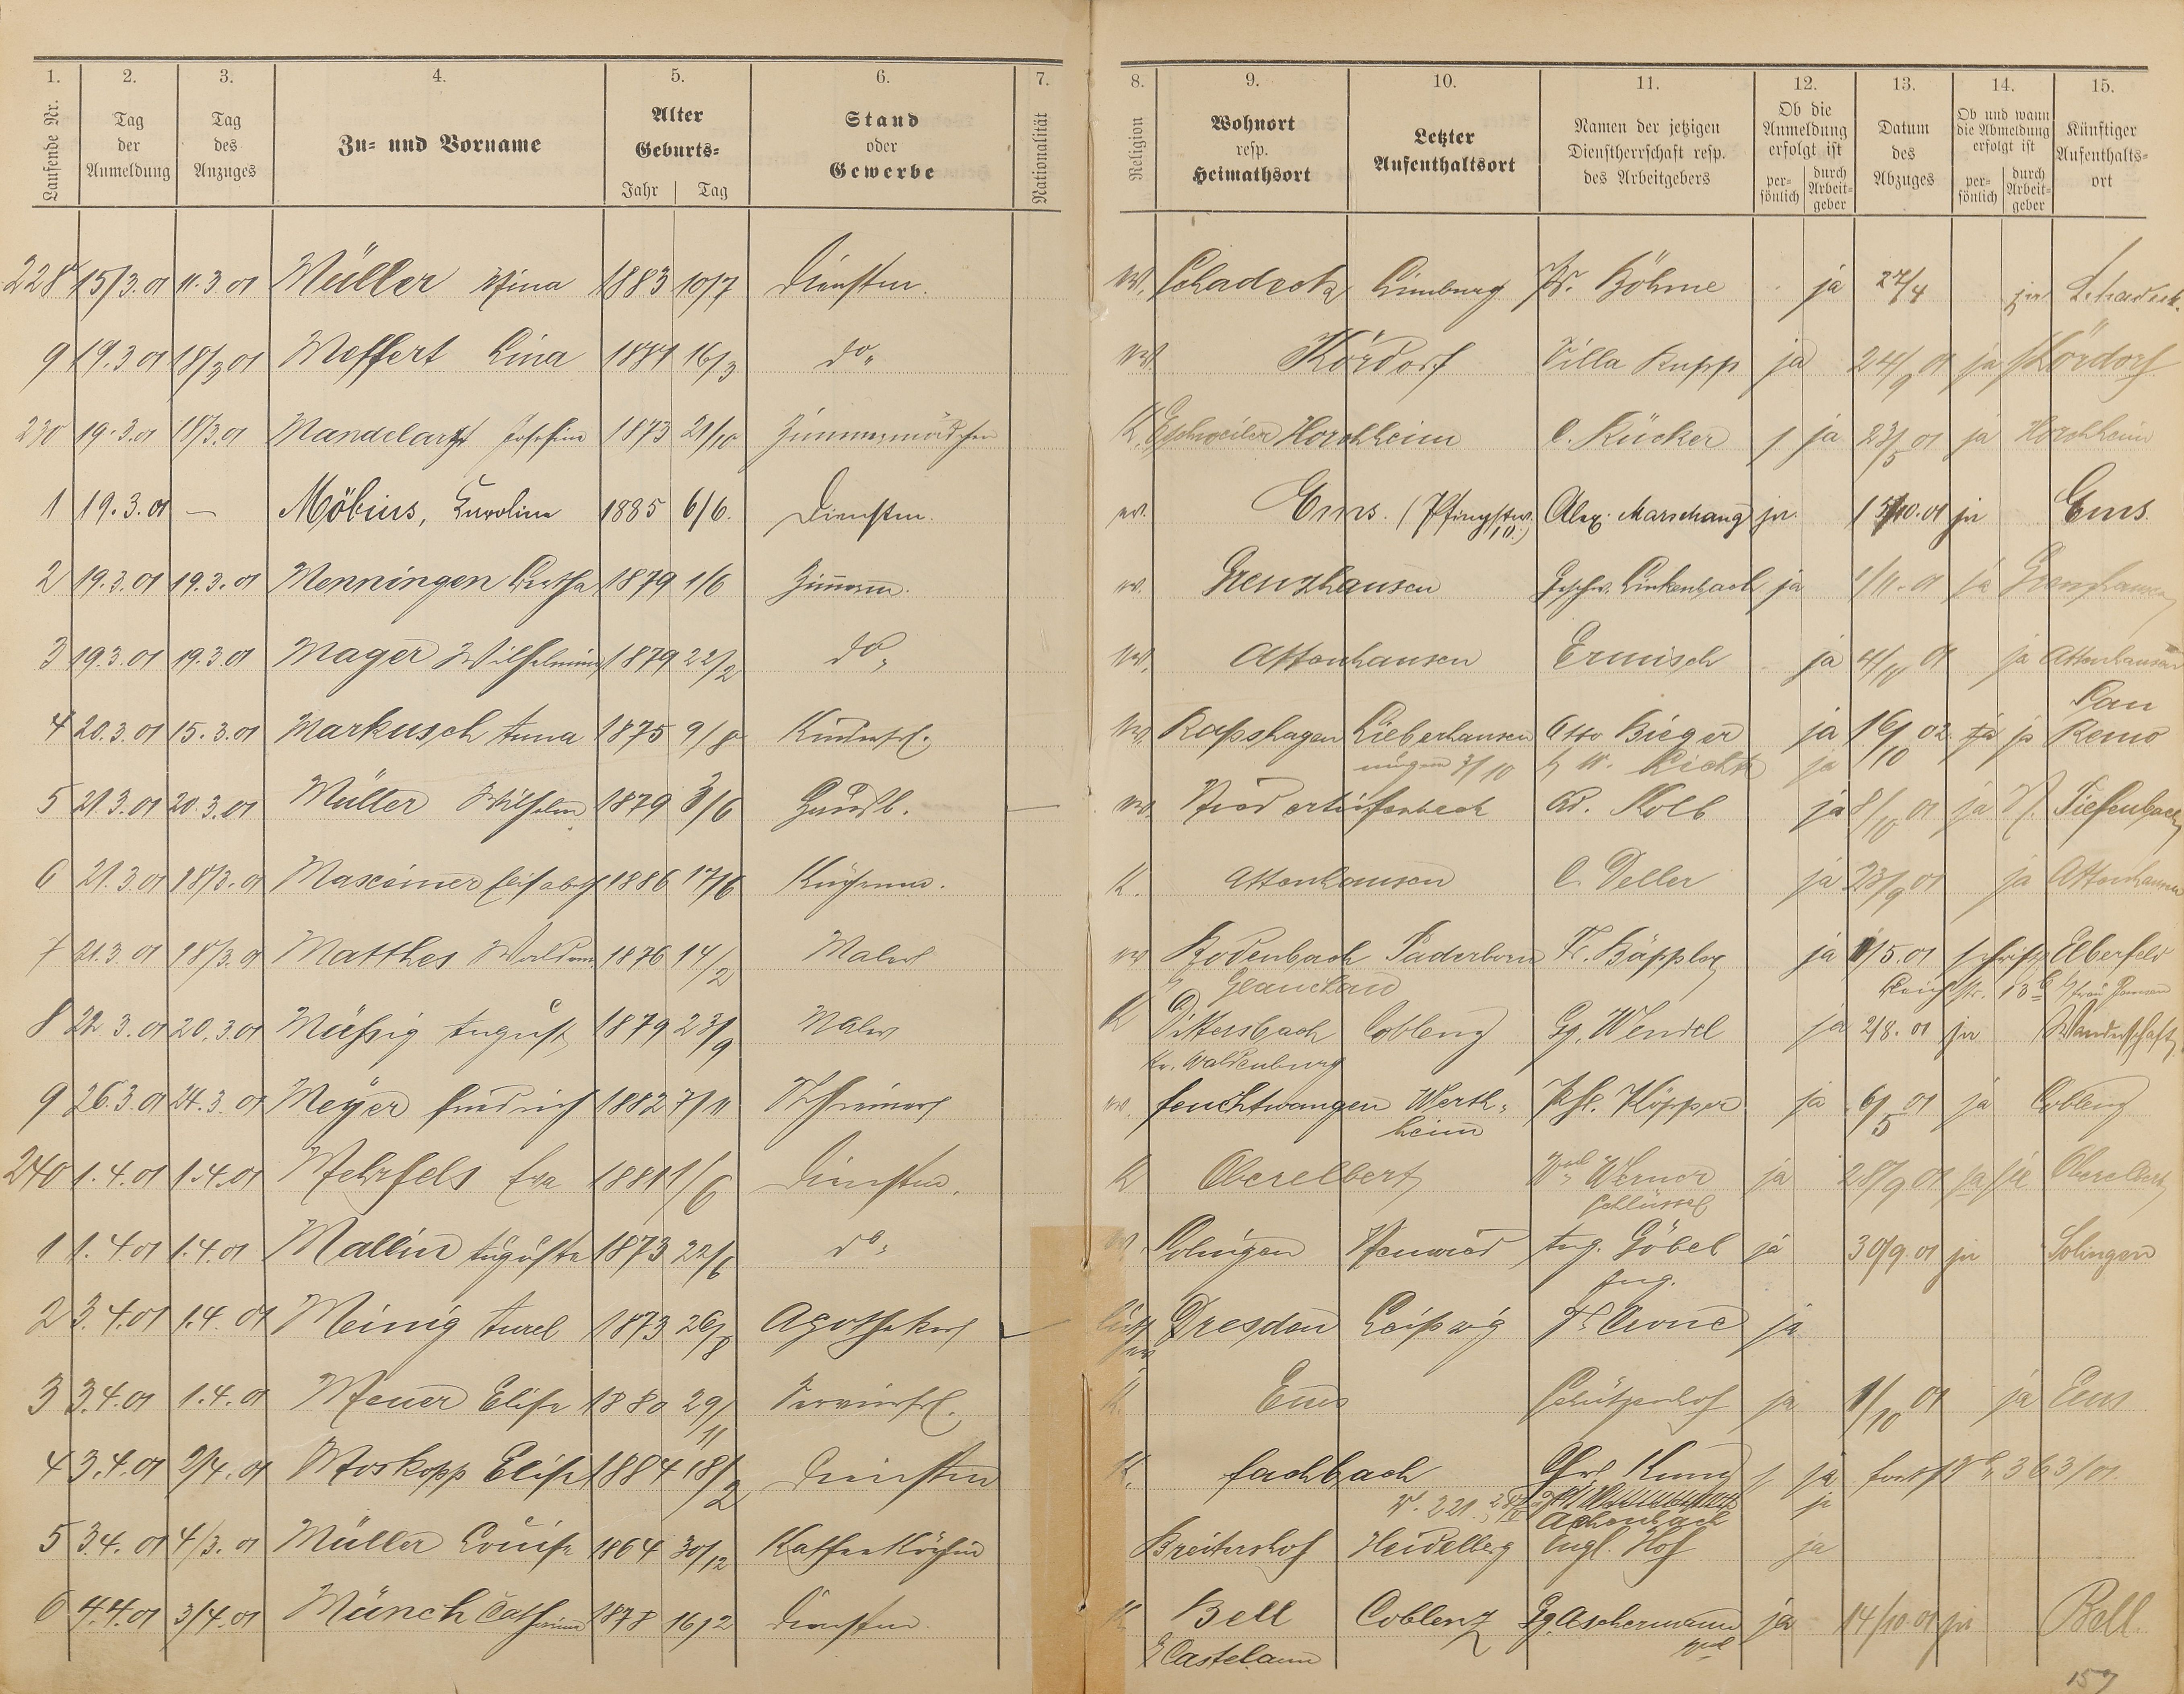 1. 2. 3. 4. 5. 6. 7. 8. 9. 10. 11. 12. 13. 14. 15.
Laufende Nr. Tag der Anmeldung Tag des Anzuges Zu- und Vorname Alter Geburts- Jahr Tag Stand oder Gewerbe Nationalität Religion Wohnort resp. Heimathsort Letzter Aufenthaltsort Namen der jetzigen Dienstherrschaft resp. des Arbeitgebers Ob die Anmeldung erfolgt ist per- sönlich durch Arbeit- geber Datum des Abzuges Ob und wann die Abmeldung erfolgt ist per- sönlich durch Arbeit- geber Künftiger Aufenthalts- ort
228 15/3.01 11.3.01 Müller Mina 1883 10/7 Dienstm. ev. Schadeck Limburg Fr. Böhme ja 27/4 ja Schadeck
9 19.3.01 18/3 01 Meffert Lina 16/3 do. ev. Kördorf Villa Rupp ja 24/9 01 ja Kördorf
230 19.3.01 18/3.01 Mandelartz Josefine 1873 21/10 Zimmermädchen K. Eschweiler Horchheim C. Rücker ja 23/5 01 ja Horchheim
1 19.3.01 — Möbius, Karoline 1885 6/6. Dienstm. ev. Ems. (Pfingstw. Alex. Marschang ja. 15/10.01 ja Ems.
2 19.3.01 19.3.01 Menningen Bertha 1879 1/6 Zimmerm. ev. Grenzhausen Geschw. Linkenbach ja 1/11.01 ja Grenzhausen
3 19.3.01 19.3.01 Mager Wilhelmine 1879 22/2 do. ev. Attenhausen Ermisch ja 4/10 01 ja Attenhausen
4 20.3.01 15.3.01 Markusch Anna 1875 9/8 Kinderfrl. ev. Rapshagen Lieberhausen Otto Bieger ja 16/10 02 ja ja San Remo
ja
5 21.3.01 20.3.01 Müller Wilhelm 1879 3/6 Hausb. — ev. Niedertiefenbach Ad. Kolb ja 8/10 01 ja N. Tiefenbach
6 21.3.01 18/3.01 Maxeiner Elisabeth 1886 17/6 Küchenm. K. Attenhausen C. Deller ja 23/9 01 ja Attenhausen
7 21.3.01 18/3.01 Matthes Woldem. 1876 14/2 Maler ev Rodenbach Paderborn Fr. Bäppler ja 1/5.01 schriftl. Elberfeld
Glauchau 13
8 22.3.01 20.3.01 Müßig August 1879 23/9 Maler K Dittersbach Coblenz Gg. Wendel ja 2/8.01 ja Wanderschaft
Kr. Waldenburg
9 26.3.01 24.3.01 Meyer Friedrich 1882 7/11 Schreiner ev. Feuchtwangen Werth- heim Phl. Köpper ja 6/5 01 ja Coblenz
240 1.4.01 1.4.01 Mehrfels Eva 1881 1/6 Dienstm. K Oberelbert Werner Schlüssel ja 28/9 01 ja Oberelbert
1 1.4.01 1.4.01 Mallin Auguste 1873 22/6 do. ev. Solingen Neuwied Aug. Göbel ja 30/9.01 ja Solingen
2 3.4.01 1.4.01 Meinig Aurel 1873 26/8 Apotheker Dresden Leipzig ja
3 3.4.01 1.4.01 Meuer Elise 1880 29/11 Servierfrl. K. Ems Schützenhof ja 1/10 01 ja Ems
4 3.4.01 2/4.01 Moskopp Elise 1884 18/2 Dienstm K. Fachbach ja 363/01.
Achenbach ja
5 3.4.01 4/3.01 Müller Louise 1864 30/12 Kaffeeköchin Breitershof Heidelberg Engl. Hof ja
6 4.4.01 3/4.01 Münch Catharina 1878 16/2 Dienstm. K Bell Coblenz Gg. Aschermann ja 14/10.01 ja Bell.
Castelaun
157